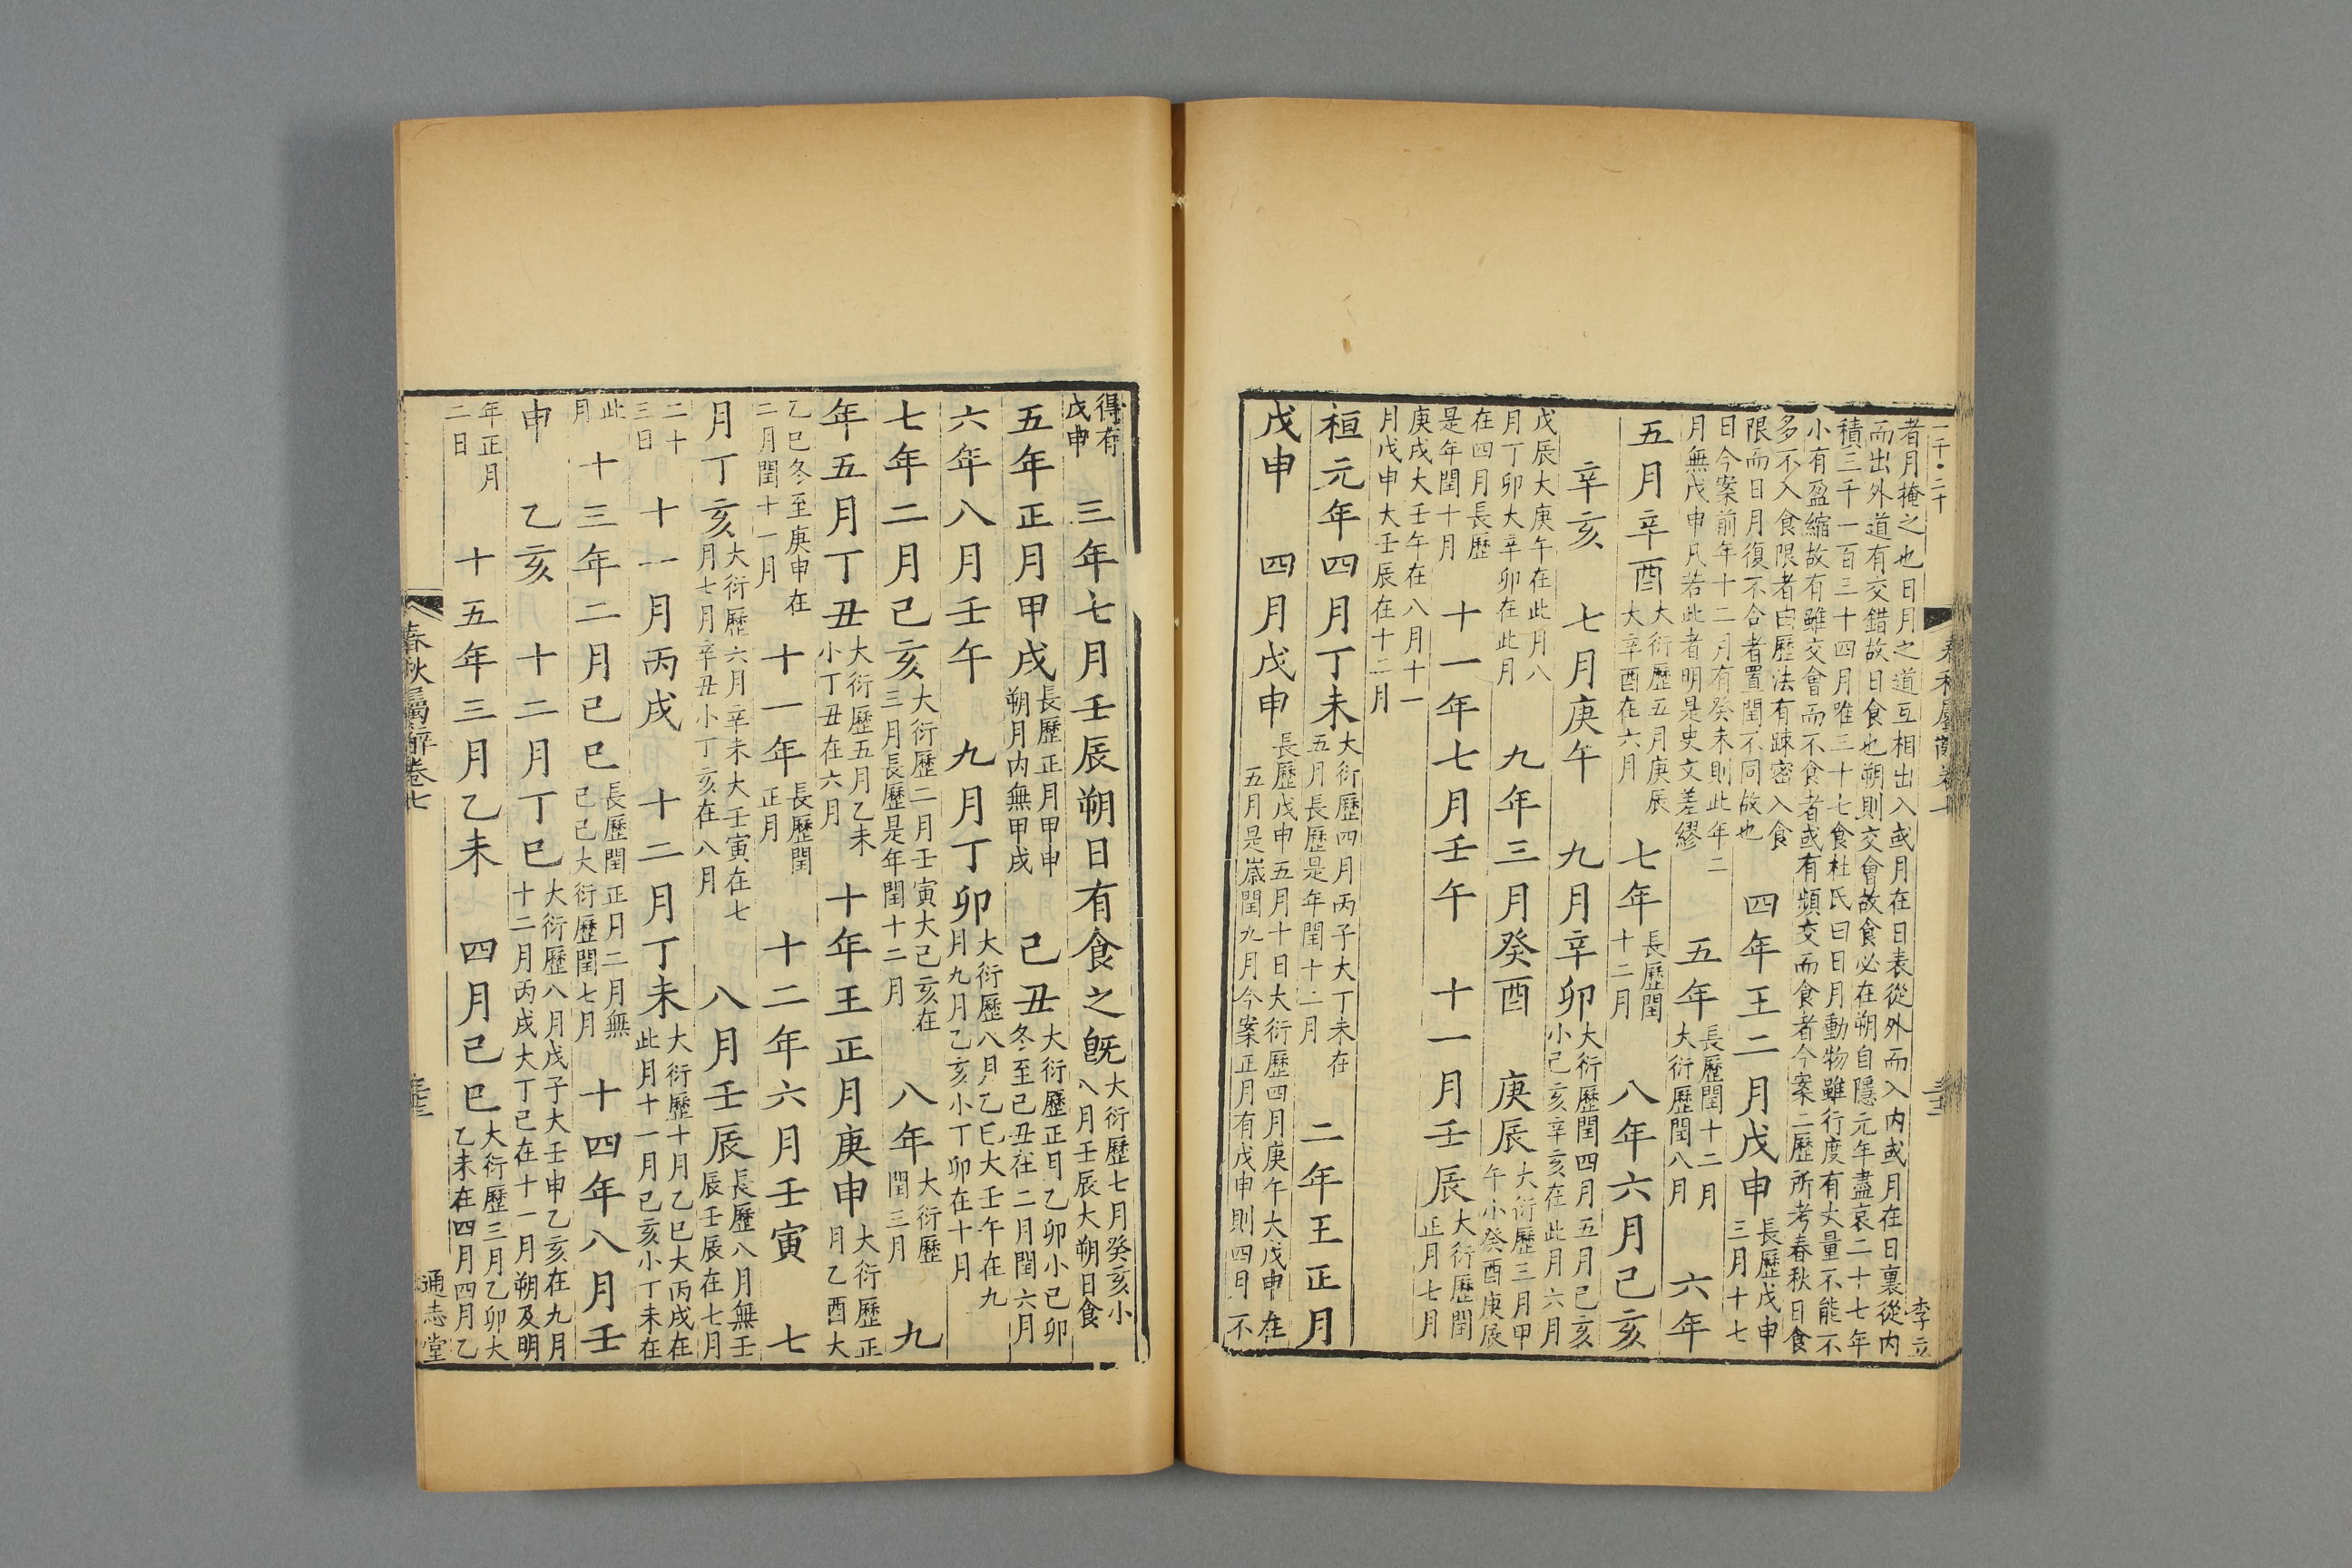 一千●二十
李立
者月掩之也日月之道互相出入或月在日表從外而入内或月在日裏從内
而出外道有交錯故日食也朔則交會故食必在朔自隱元年盡哀二十七年
積三千一百三十四月唯三十七食杜氏曰日月動物雖行度有丈量不能不
小有盈縮故有雖交會而不食者或有頻交而食者今案二歷所考春秋日食
多不入食限者由歷法有踈密入食
限而日月復不合者置閏不同故也
四年王二月戊申
長歷戊申
三月十七
日今案前年十二月有癸未則此年二
月無戊申凡若此者明是史文差繆
五年
長歷閏十二月
大衍歷閏八月
六年
五月辛酉
大衍歷五月庚辰
大辛酉在六月
七年
長歷閏
十二月
八年六月己亥
辛亥
七月庚午
九月辛卯
大衍歷閏四月五月己亥
小己亥辛亥在此月六月
戊辰大庚午在此月八
月丁卯大辛卯在此月
九年三月癸酉
庚辰
大衍歷三月甲
午小癸酉庚辰
在四月長歷
是年閏十月
十一年七月壬午
十一月壬辰
大衍歷閏
正月七月
庚戌大壬午在八月十一
月戊申大壬辰在十二月
桓元年四月丁未
大衍歷四月丙子大丁未在
五月長歷是年閏十二月
二年王正月
戊申
四月戊申
長歷戊申五月十日大衍歷四月庚午大戊申在
五月是歲閏九月今案正月有戊申則四月不
得有
戊申
三年七月壬辰朔日有食之旣
大衍歷七月癸亥小
八月壬辰大朔日食
五年正月甲戌
長歷正月甲申
朔月内無甲戌
己丑
大衍歷正月乙卯小己卯
冬至己丑在二月閏六月
六年八月壬午
九月丁卯
大衍歷八月乙巳大壬午在九
月九月乙亥小丁卯在十月
七年二月己亥
大衍歷二月壬寅大己亥在
三月長歷是年閏十二月
八年
大衍歷
閏三月
九
年五月丁丑
大衍歷五月乙未
小丁丑在六月
十年王正月庚申
大衍歷正
月乙酉大
乙巳冬至庚申在
二月閏十一月
十一年
長歷閏
正月
十二年六月壬寅
七
月丁亥
大衍歷六月辛未大壬寅在七
月七月辛丑小丁亥在八月
八月壬辰
長歷八月無壬
辰壬辰在七月
二十
三日
十一月丙戌
十二月丁未
大衍歷十月乙巳大丙戌在
此月十一月己亥小丁未在
此
月
十三年二月己巳
長歷閏正月二月無
己巳大衍歷閏七月
十四年八月壬
申
乙亥
十二月丁巳
大衍歷八月戊子大壬申乙亥在九月
十二月丙戌大丁巳在十一月朔及明
年正月
二日
十五年三月乙未
四月己巳
大衍歷三月乙卯大
乙未在四月四月乙
春秋屬辭卷七
通志堂